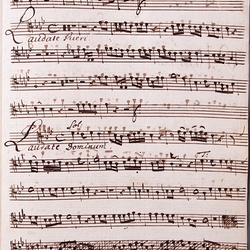 Laudate Pueri
Sol
Laudate Dominum